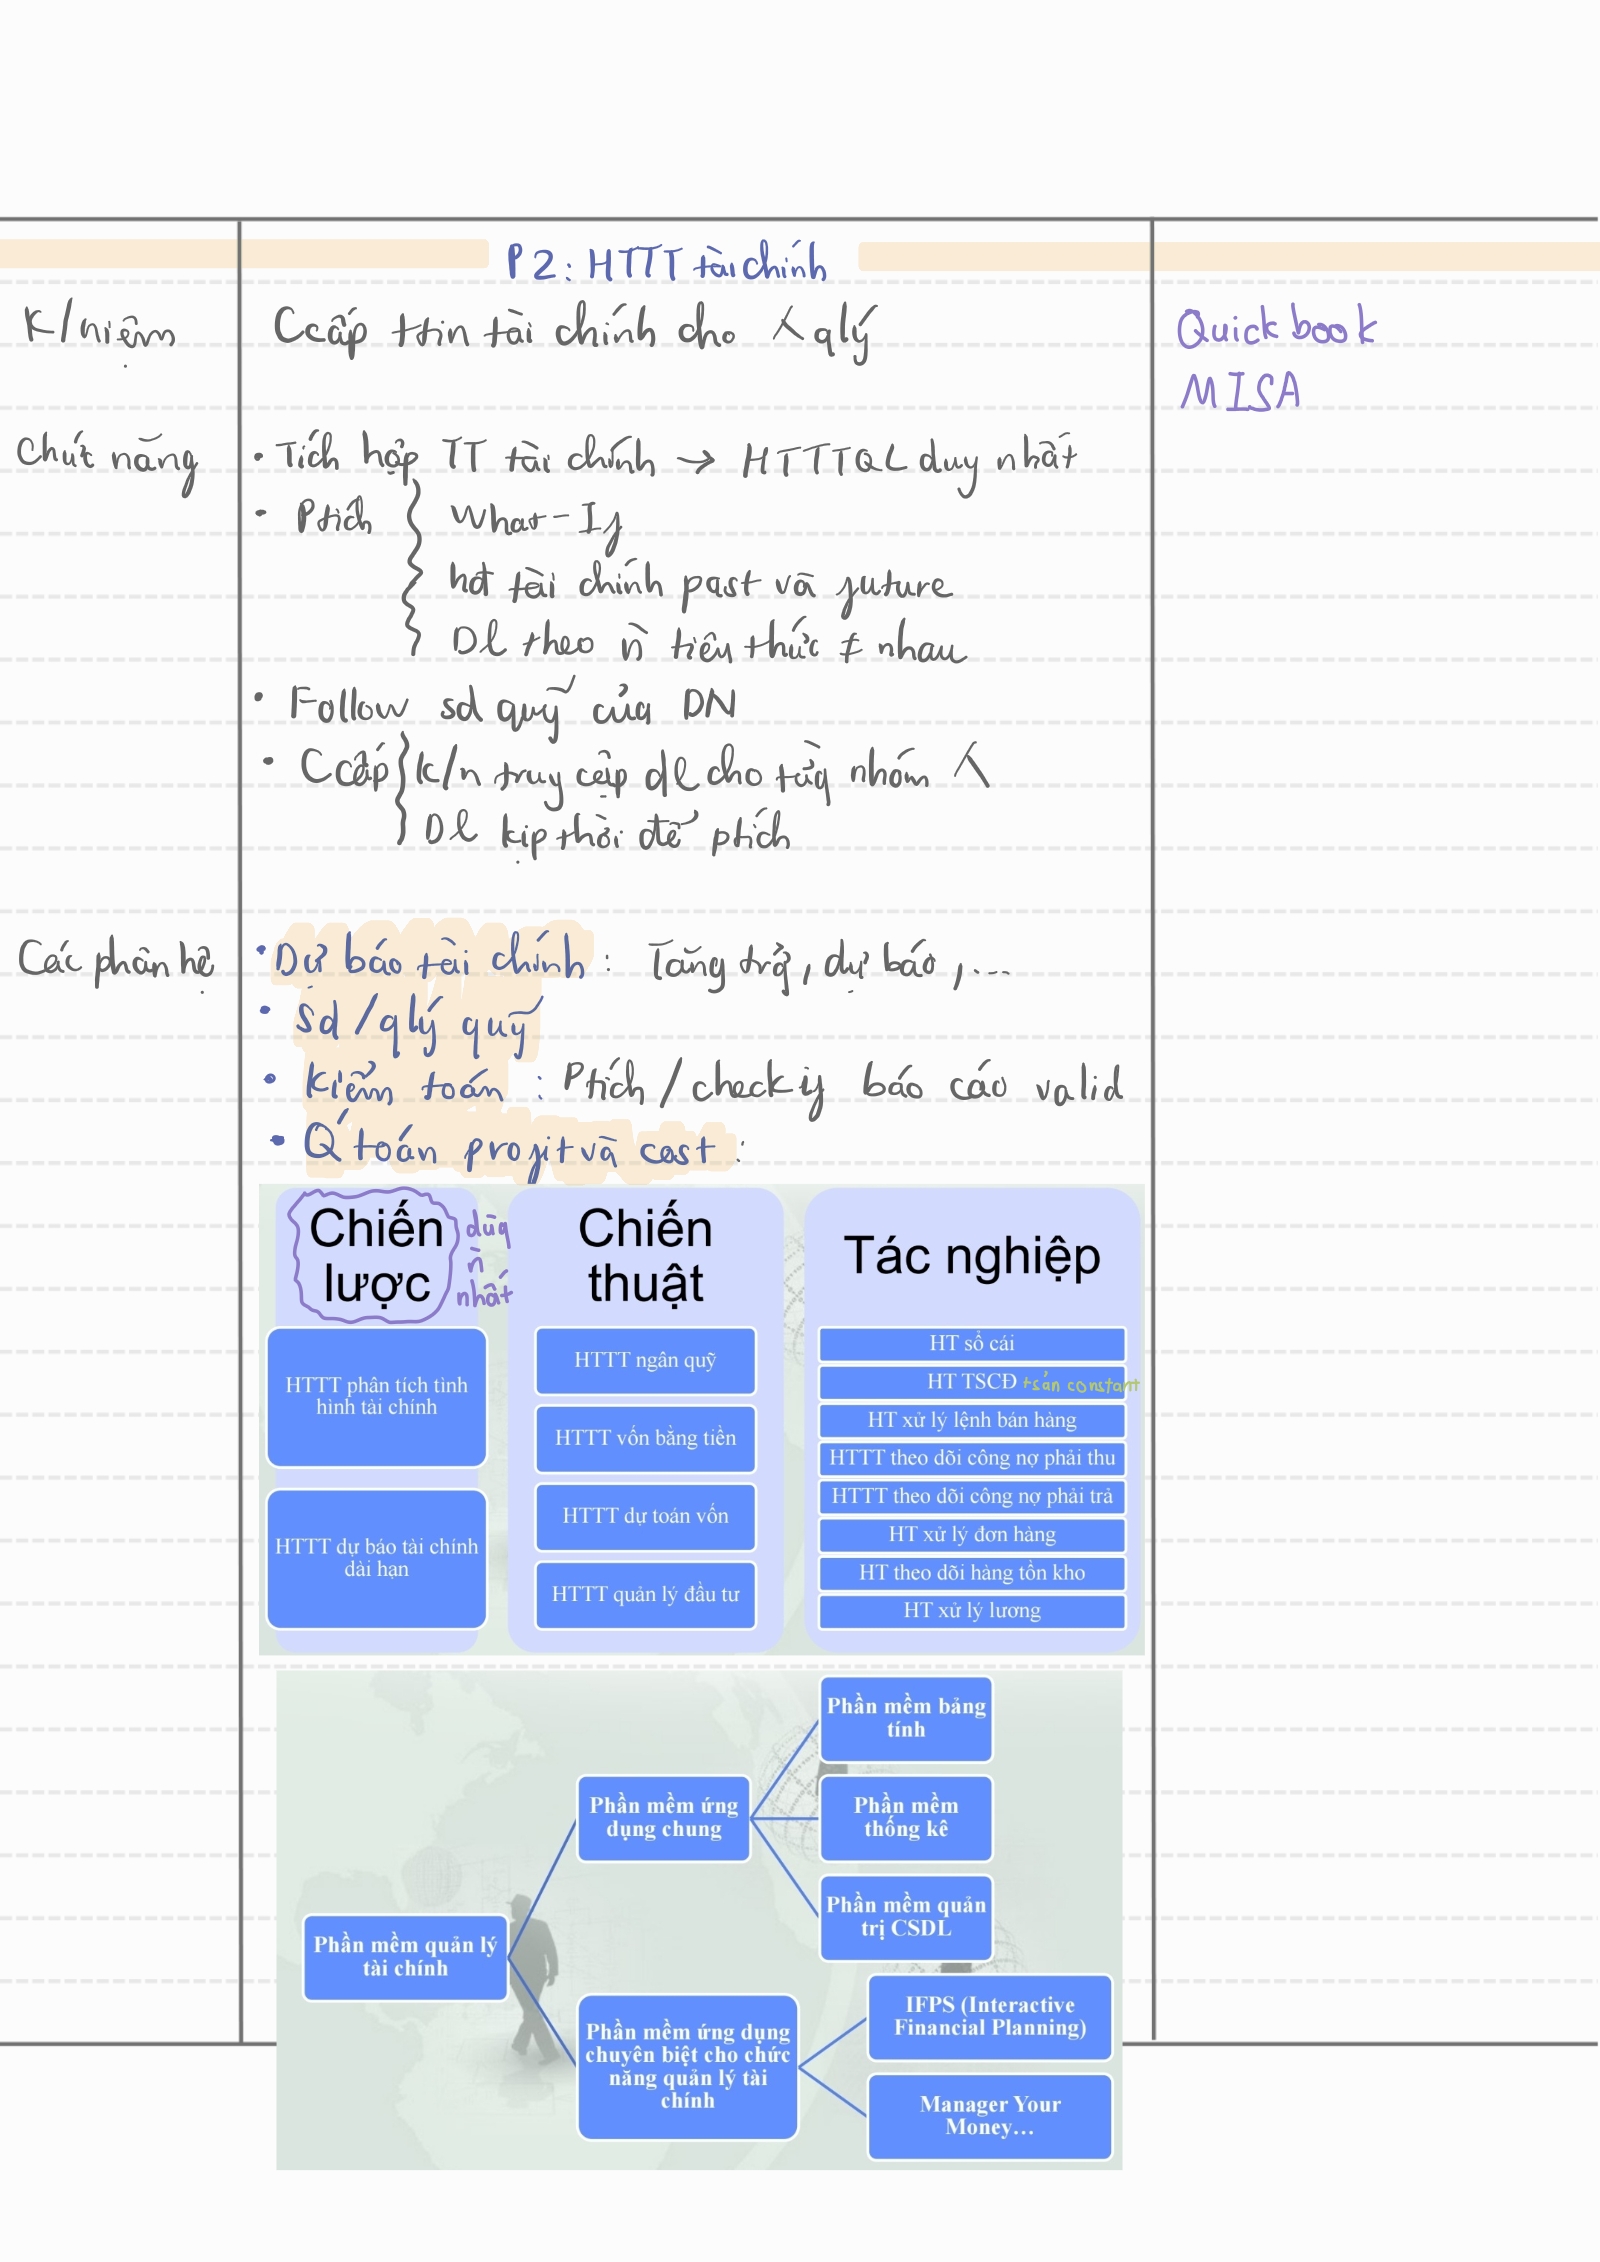 P2: HTTT tài chính
K/niệm
Ccấp ttin tài chính cho qlý
Quickbook
MISA
Chức năng
• Tích hợp TT tài chính → HTTTQL duy nhất
• Ptích
What-If
hđ tài chính past và future
Dl theo ǹ tiêu thức ≠ nhau
• Follow sd quỹ của DN
• Ccấp
k/n truy cập dl cho từg nhóm
Dl kịp thời để ptích
Các phân hệ
• Dự báo tài chính : Tăng trở, dự báo,...
• Sd/qlý quỹ
• Kiểm toán : Ptích / check if báo cáo valid
• Q' toán profit và cost :
Chiến
lược
dùg
ǹ
nhất
Chiến
thuật
Tác nghiệp
HTTT phân tích tình
hình tài chính
HTTT dự báo tài chính
dài hạn
HTTT ngân quỹ
HTTT vốn bằng tiền
HTTT dự toán vốn
HTTT quản lý đầu tư
HT sổ cái
HT TSCĐ tsản constant
HT xử lý lệnh bán hàng
HTTT theo dõi công nợ phải thu
HTTT theo dõi công nợ phải trả
HT xử lý đơn hàng
HT theo dõi hàng tồn kho
HT xử lý lương
Phần mềm quản lý
tài chính
Phần mềm ứng
dụng chung
Phần mềm bảng
tính
Phần mềm
thống kê
Phần mềm quản
trị CSDL
Phần mềm ứng dụng
chuyên biệt cho chức
năng quản lý tài
chính
IFPS (Interactive
Financial Planning)
Manager Your
Money…